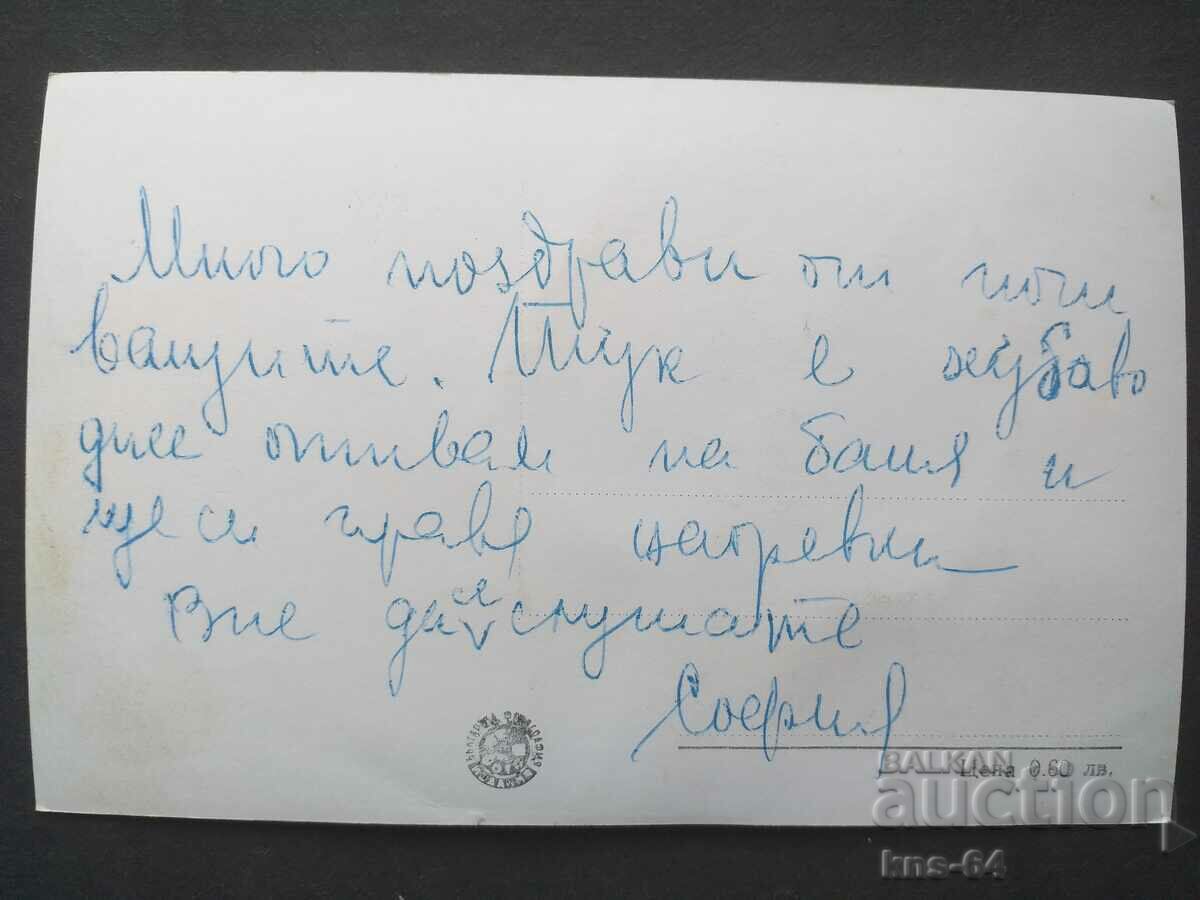 Много поздрави от почи
ващите. Тук е хубаво
днес отивам на баня и
ще си правя нагревки
Вие да се слушате
София
Цена 0.60 лв.
BALKAN
auction
kns-64